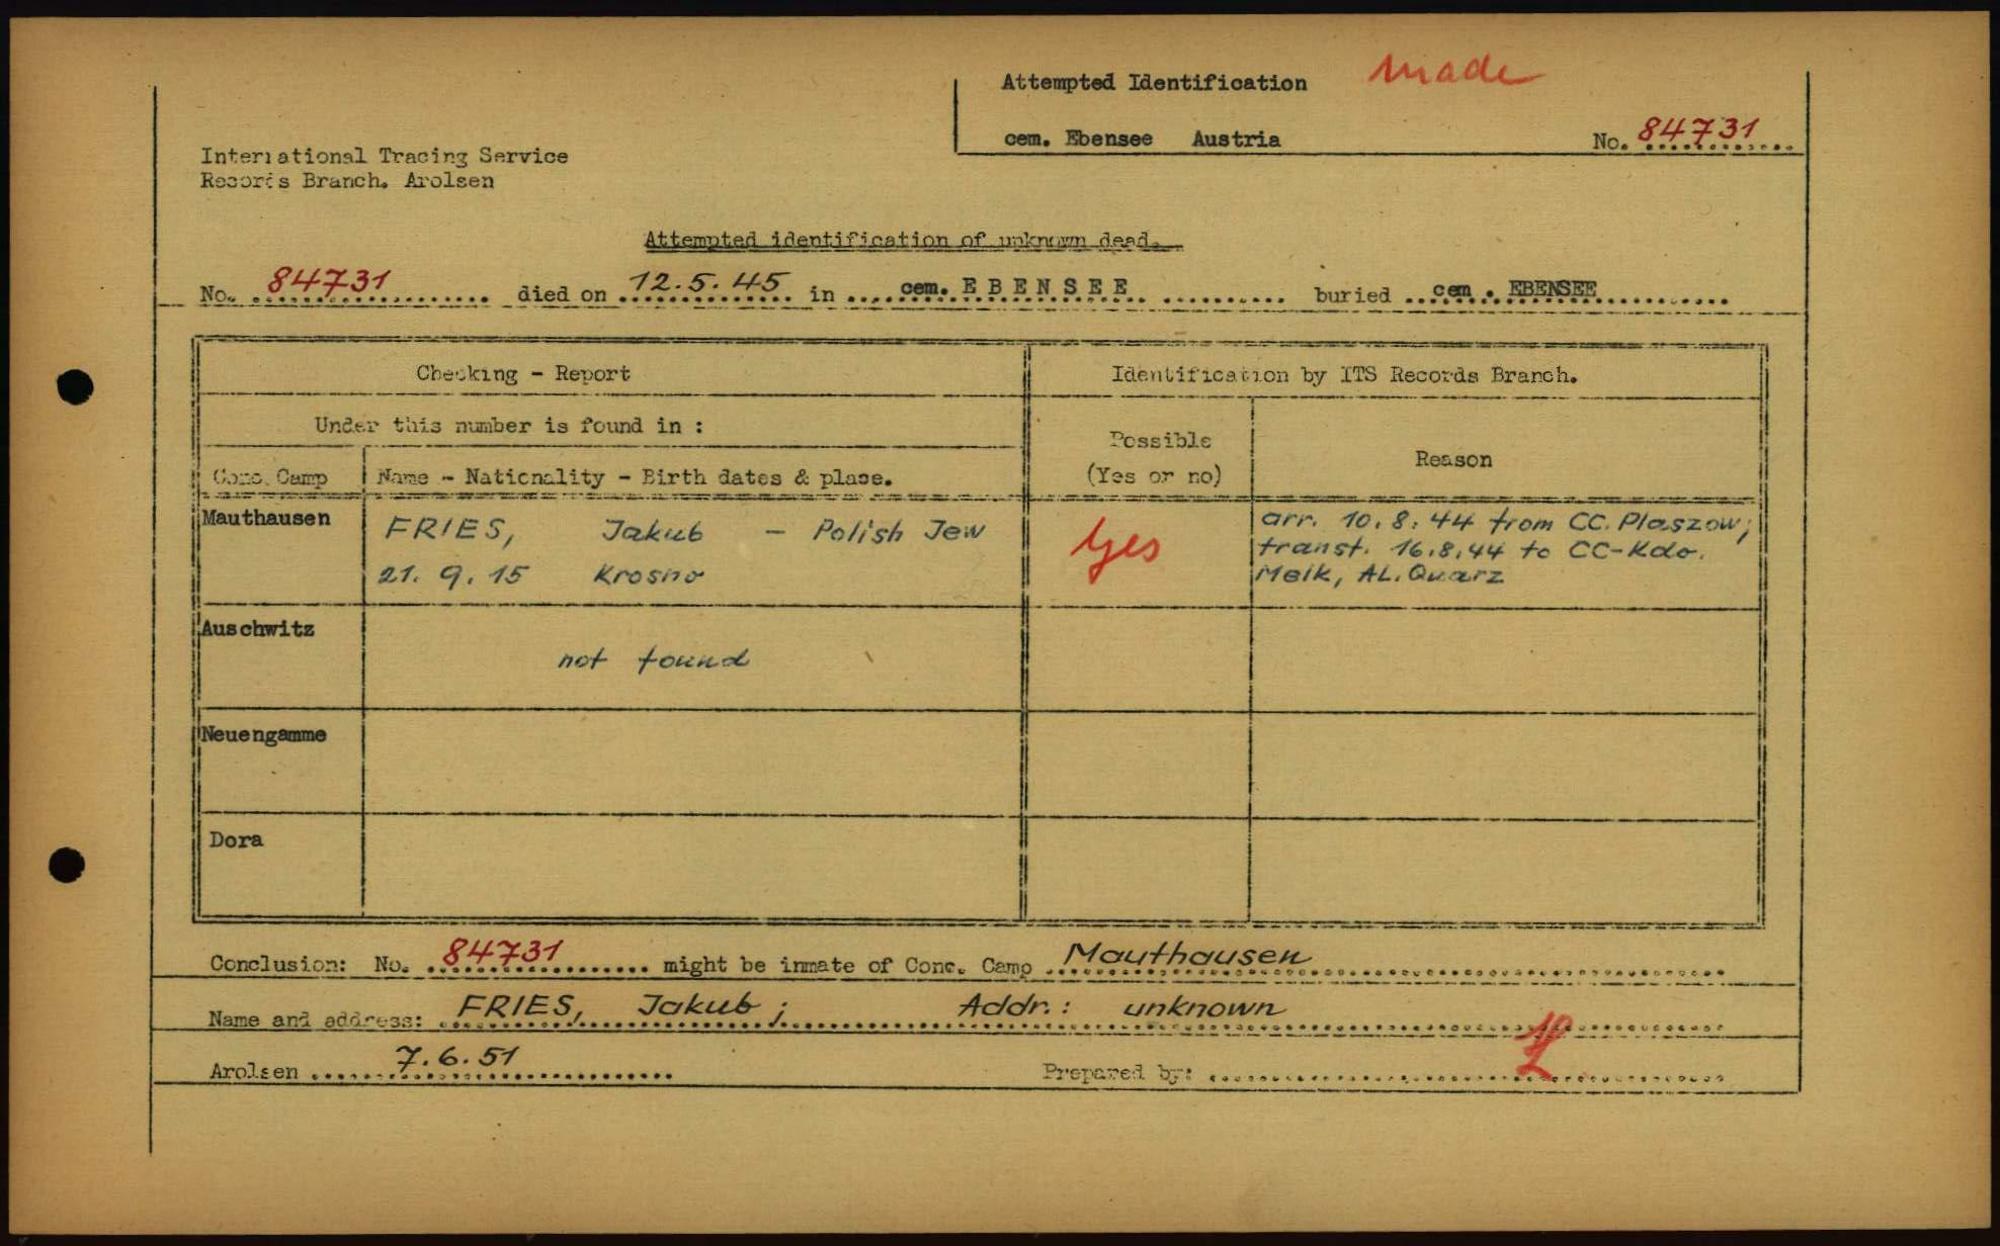 Attempted Identification made
cem. Ebensee Austria No. 84731
International Tracing Service
Records Branch. Arolsen
Attempted identification of unknown dead.
No. 84731 died on 12.5.45 in cem. EBENSEE buried cem. EBENSEE
Checking - Report Identification by ITS Records Branch.
Under this number is found in :
Possible
(Yes or no)
Reason
Conc. Camp Name - Nationality - Birth dates & place.
Mauthausen FRIES, Jakub - Polish Jew
21. 9. 15 Krosno
Yes
arr. 10.8.44 from CC. Plaszow;
transf. 16.8.44 to CC-Kdo.
Melk, AL. Quarz
Auschwitz
not found
Neuengamme
Dora
Conclusion: No. 84731 might be inmate of Conc. Camp Mauthausen
Name and address: FRIES, Jakub; Addr.: unknown
Arolsen 7.6.51 Prepared by: